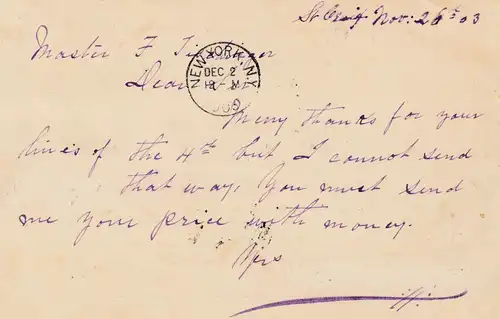 St Croix Nov: 26th 03
Master F
NEW YORK, N.Y.
DEC 2
Dear
Many thanks for your
lines of the 4th but I cannot send
that way, You must send
me your price with money.
Yrs